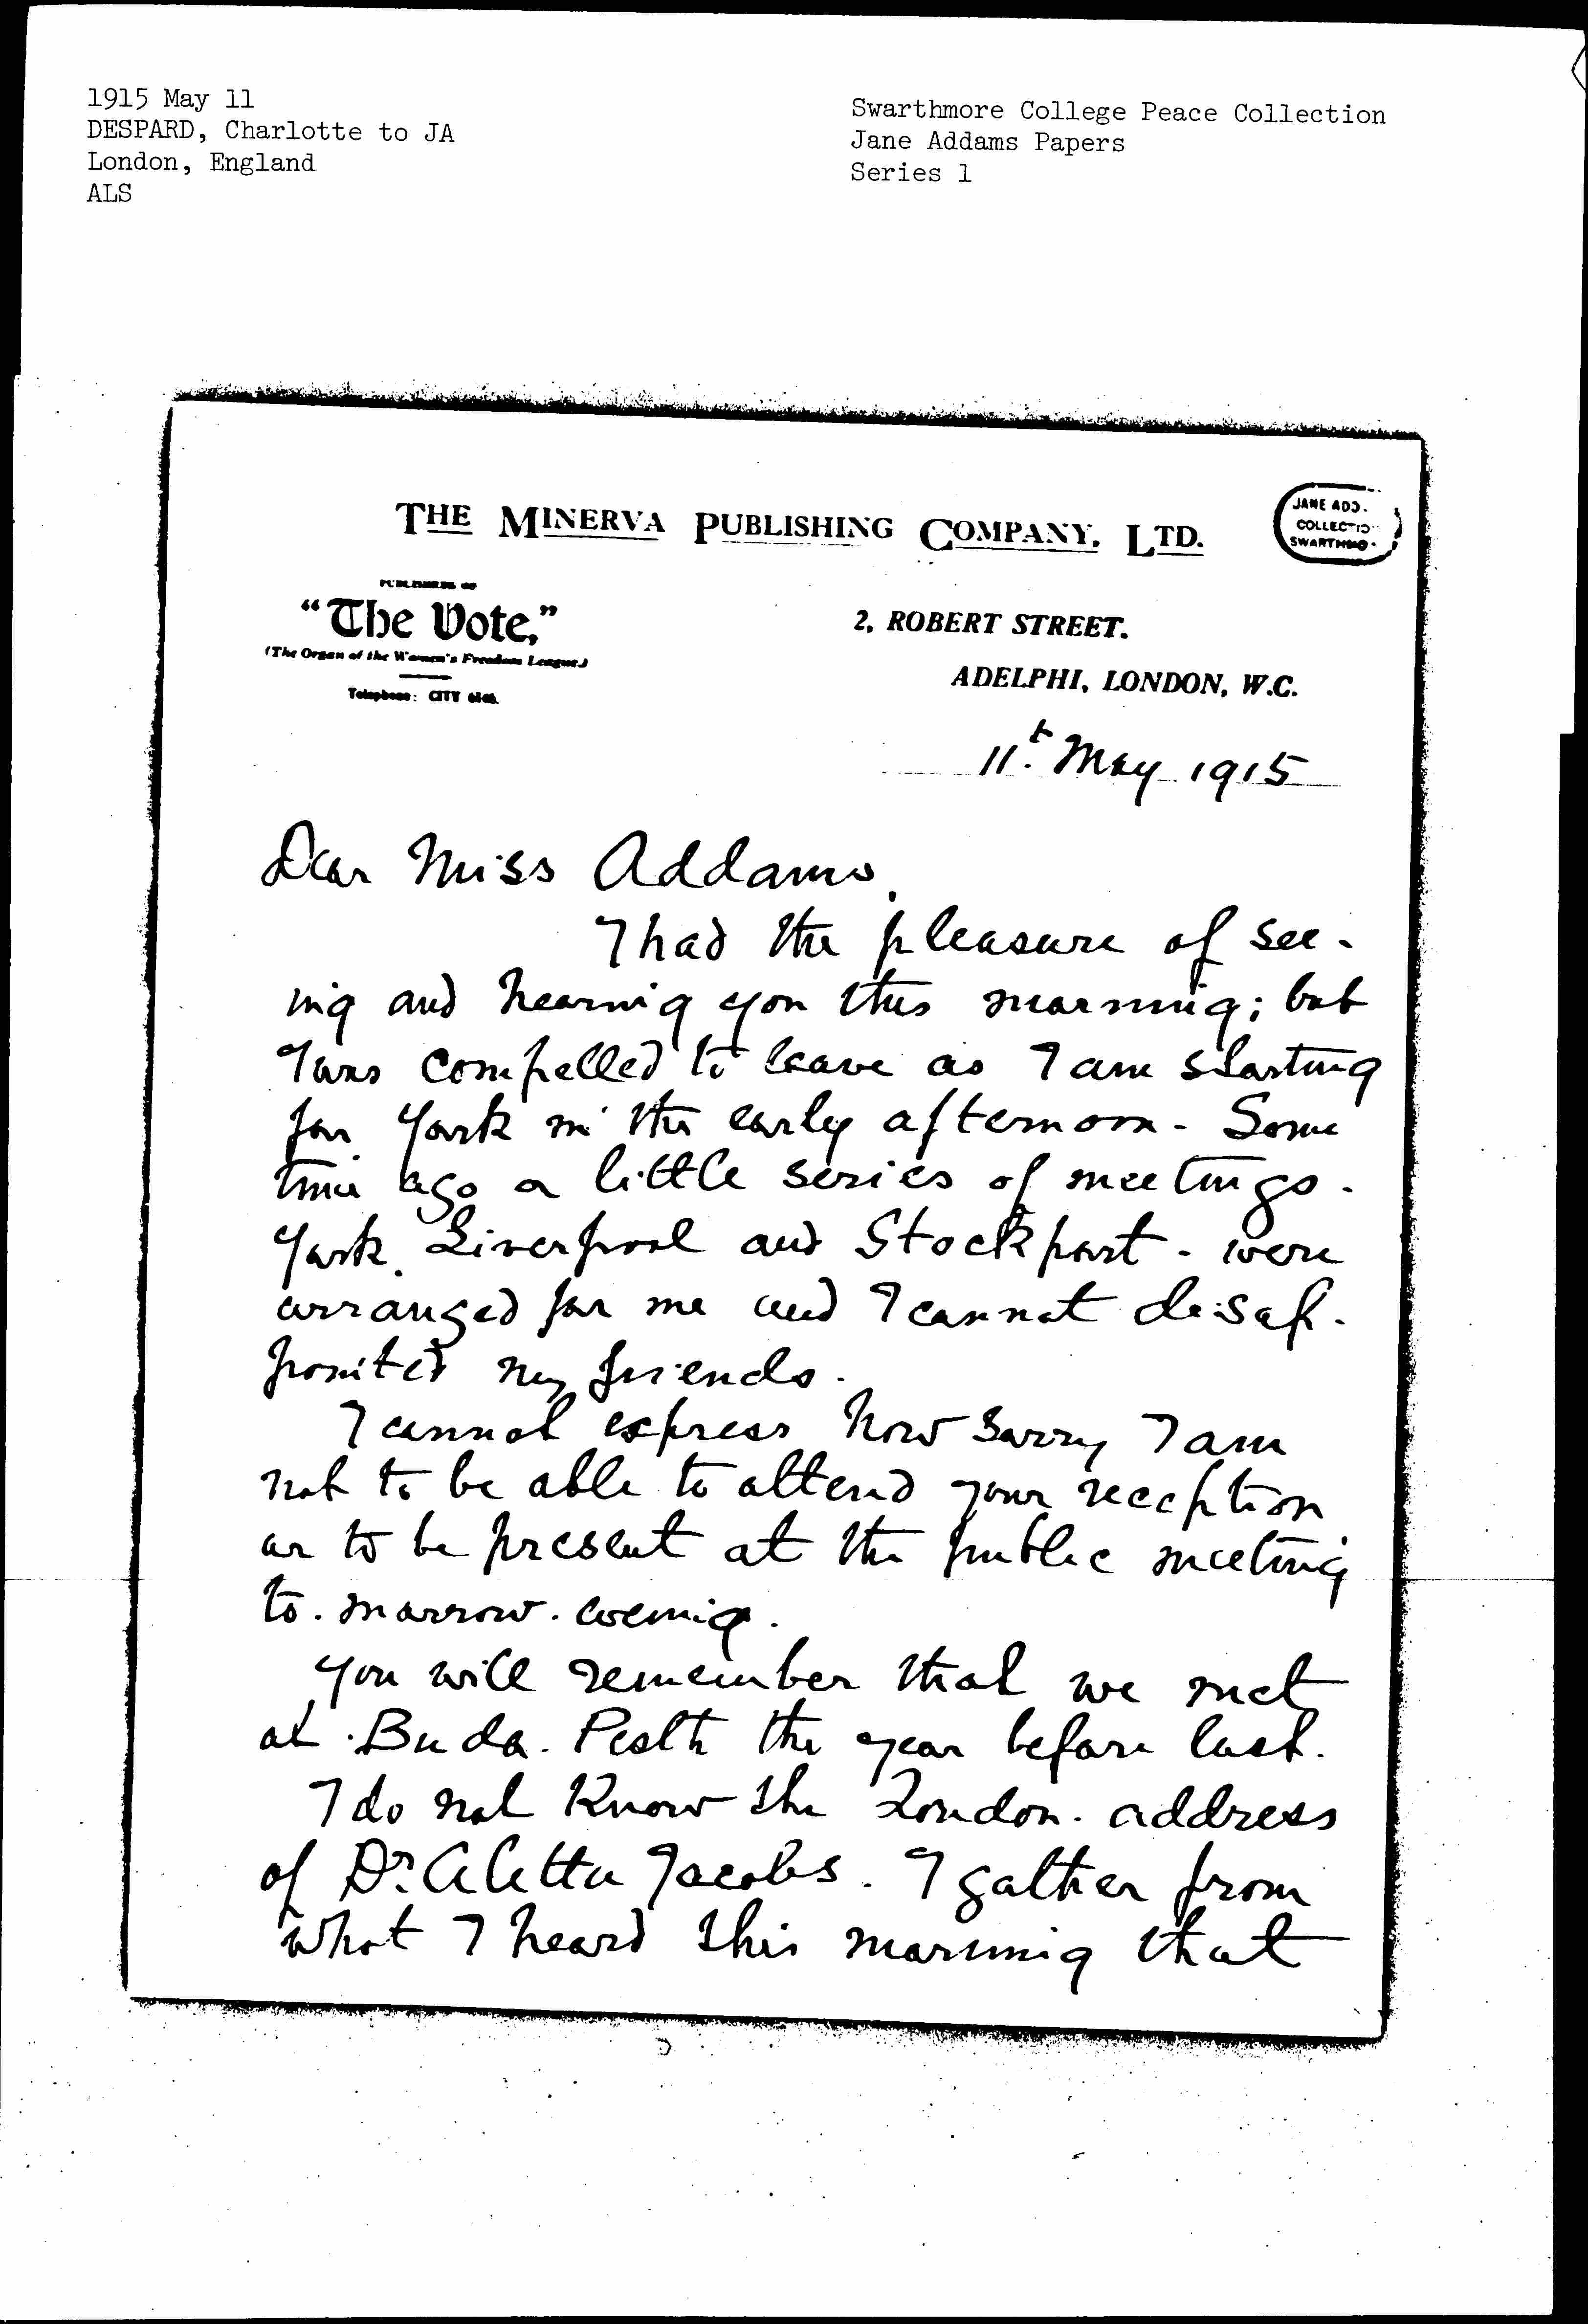 1915 May 11
DESPARD, Charlotte to JA
London, England
ALS
Swarthmore College Peace Collection
Jane Addams Papers
Series 1
THE MINERVA PUBLISHING COMPANY, LTD.
JANE ADD
COLLECTIO
SWARTHMO
PUBLISHERS OF
"The Vote,"
(The Organ of the Women's Freedom League.)
Telephone: CITY
2, ROBERT STREET.
ADELPHI, LONDON, W.C.
11t. May 1915
Dear Miss Addams,
I had the pleasure of see-
ing and hearing you this morning; but
I was compelled to leave as I am starting
for York in the early afternoon - Some
time ago a little series of meetings -
York, Liverpool and Stockport - were
arranged for me and I cannot disap-
pointed my friends.
I cannot express how sorry I am
not to be able to attend your reception
or to be present at the public meeting
to-morrow-evening.
You will remember that we met
at Buda-Pesth the year before last.
I do not know the London address
of Dr. Aletta Jacobs. I gather from
what I heard this morning that